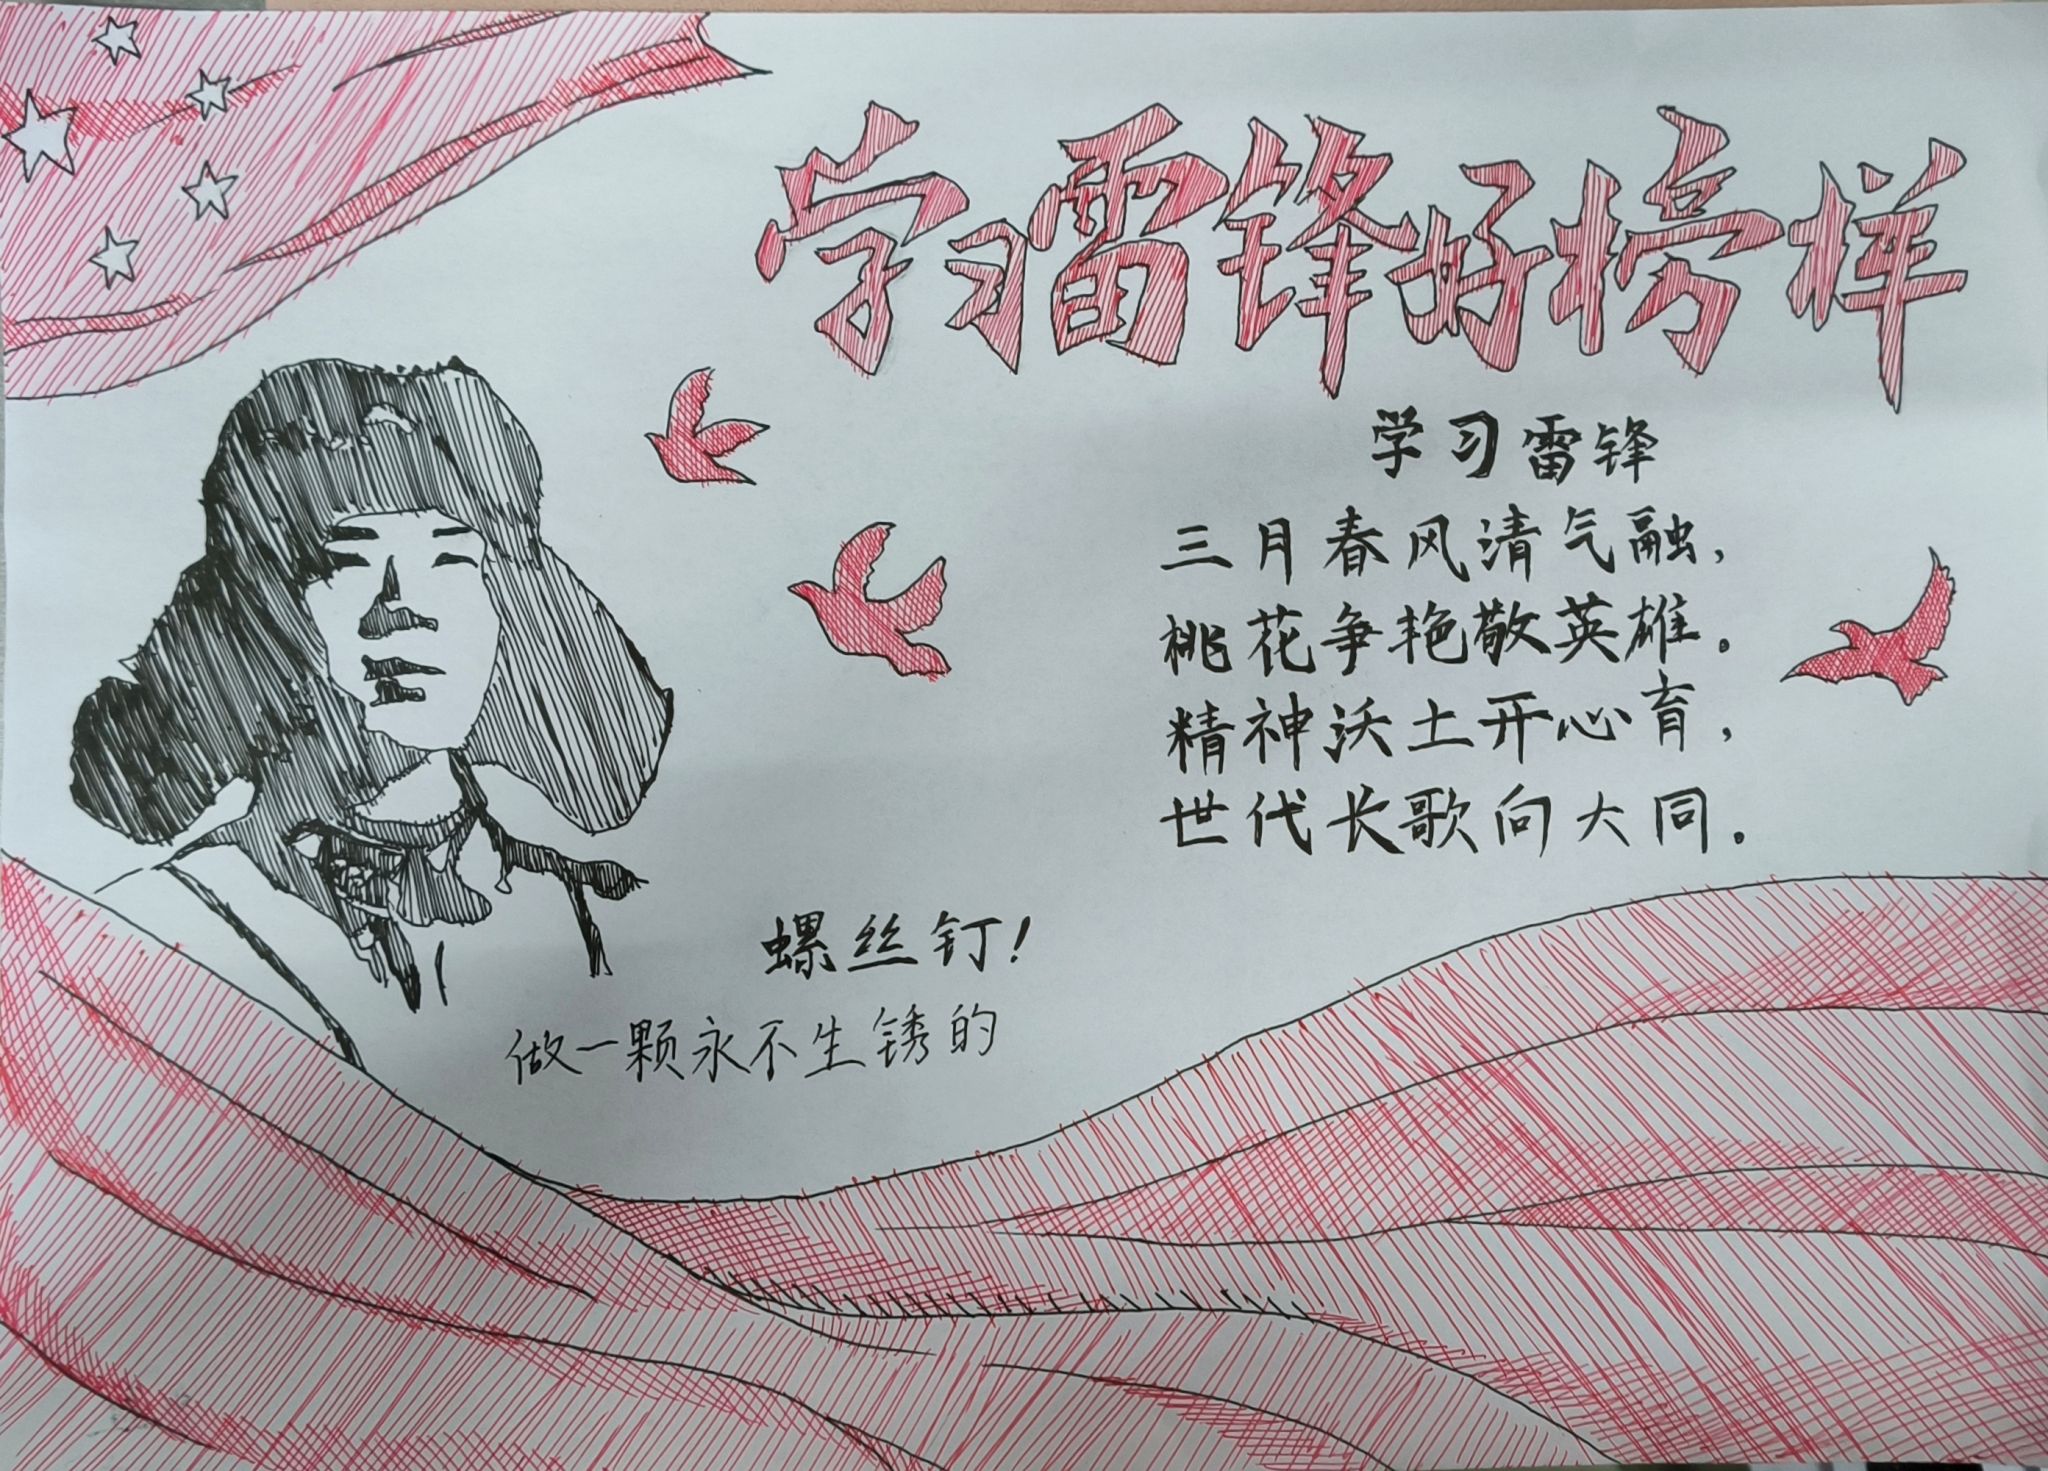 学习雷锋好榜样
学习雷锋
三月春风清气融，
桃花争艳敬英雄。
精神沃土开心育，
世代长歌向大同。
螺丝钉！
做一颗永不生锈的